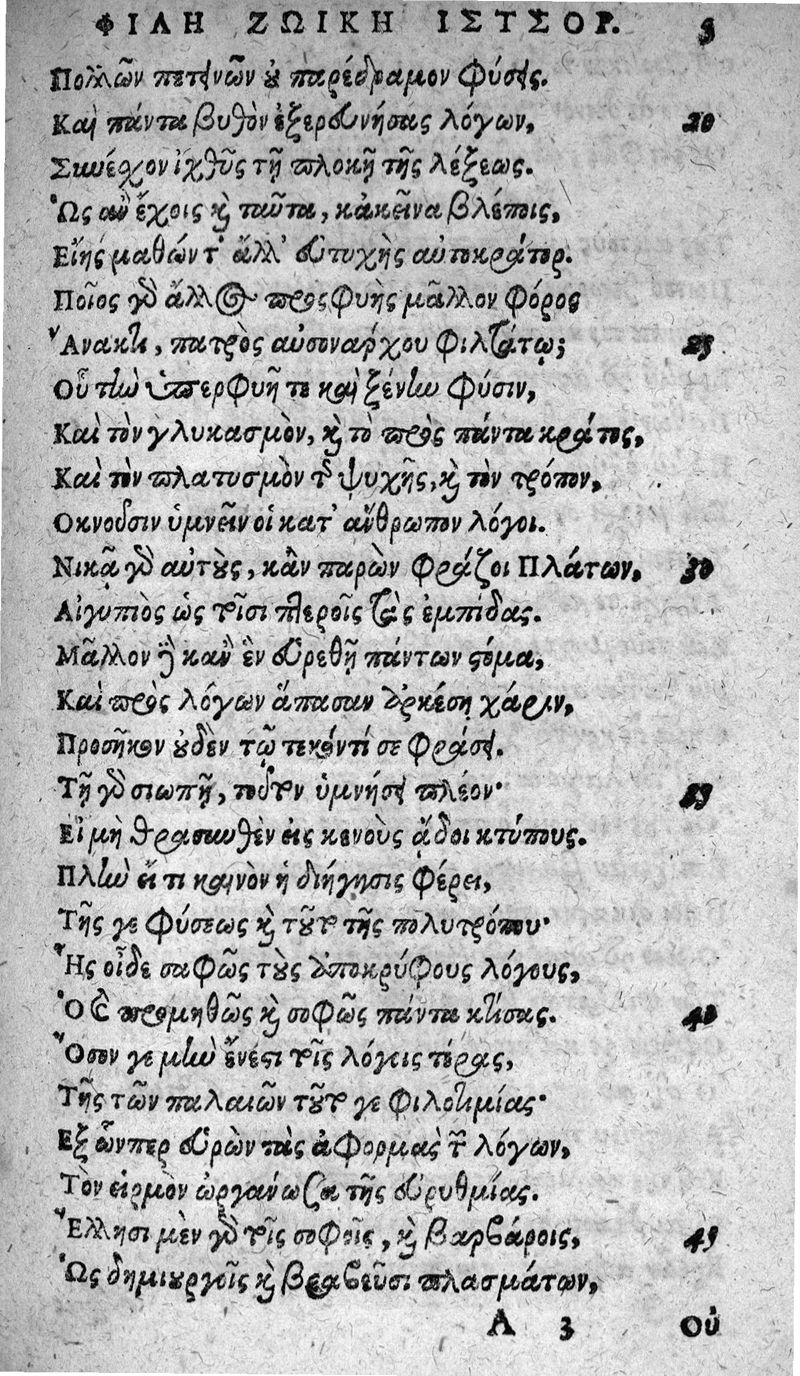 ΦΙΛΗ ΖΩΙΚΗ ΙΣΤΣΟΡ. 5
Πολλῶν πετεινῶν οὐ παρέδραμον φύσεις.
Καὶ πάντα βυθὸν ἐξερευνήσας λόγων, 20
Συνέσχον ἰχθῦς τῇ πλοκῇ τῆς λέξεως.
Ὡς ἂν ἔχοις καὶ ταῦτα, κἀκεῖνα βλέποις,
Εἴης μαθών τ' ἄλλ' εὐτυχὴς αὐτοκράτορ.
Ποῖος γὰρ ἄλλος προσφυὴς μᾶλλον φόρος
Ἄνακτι, πατρὸς αὐσοναρχου φιλτάτῳ; 25
Οὗ τὴν ὑπερφυῆ τε καὶ ξένην φύσιν,
Καὶ τὸν γλυκασμὸν, καὶ τὸ πρὸς πάντα κράτος,
Καὶ τὸν πλατυσμὸν τῆς ψυχῆς, καὶ τὸν τρόπον,
Οκνοῦσιν ὑμνεῖν οἱ κατ' ἄνθρωπον λόγοι.
Νικᾷ γὰρ αὐτοὺς, κἂν παρὼν φράζοι Πλάτων, 30
Αἰγυπιὸς ὡς τοῖσι πτεροῖς τὰς ἐμπίδας.
Μᾶλλον δὲ κἂν ἓν εὑρεθῇ πάντων στόμα,
Καὶ πρὸς λόγων ἅπασαν ἀρκέσῃ χάριν,
Προσῆκον οὐδὲν τῷ τεκόντί σε φράσει.
Τῇ γὰρ σιωπῇ, τοῦτον ὑμνήσει πλέον· 35
Εἰ μὴ θρασυνθὲν εἰς κενοὺς ᾄδοι κτύπους.
Πλὴν εἴ τι καινὸν ἡ διήγησις φέρει,
Τῆς γε φύσεως καὶ τοῦτο τῆς πολυτρόπου·
Ἧς οἶδε σαφῶς τοὺς ἀποκρύφους λόγους,
Ὁ καὶ προμηθῶς καὶ σοφῶς πάντα κτίσας. 40
Ὅσον γε μὴν ἔνεστι τοῖς λόγοις τέρας,
Τῆς τῶν παλαιῶν τοῦτό γε φιλοτιμίας·
Εξ ὧνπερ εὑρὼν τὰς ἀφορμὰς τῶν λόγων,
Τὸν εἱρμὸν ὠργάνωσα τῆς εὐρυθμίας.
Ἕλλησι μὲν γὰρ τοῖς σοφοῖς, καὶ βαρβάροις, 45
Ὡς δημιουργοῖς καὶ βραβεῦσι πλασμάτων,
Α 3 Οὐ